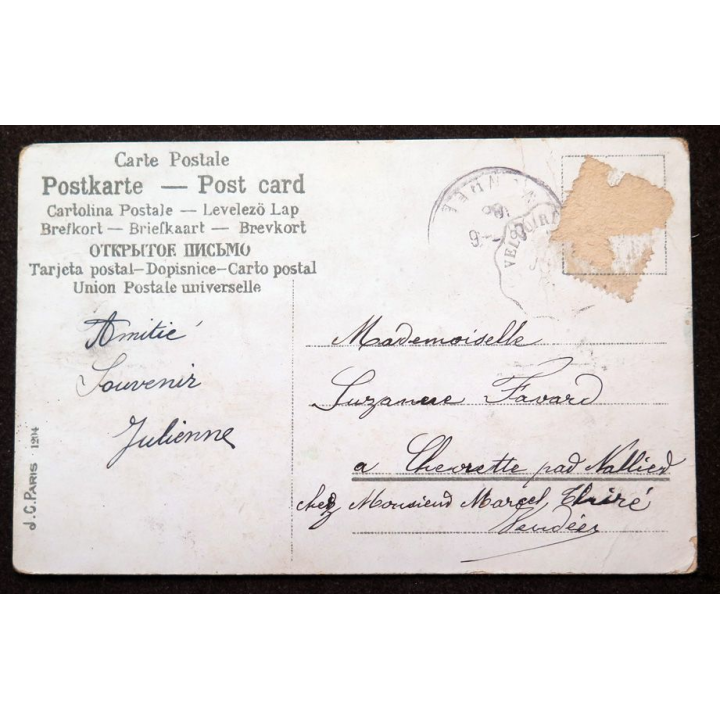 Carte Postale
Postkarte — Post card
Cartolina Postale — Levelező Lap
Brefkort — Briefkaart — Brevkort
ОТКРЫТОЕ ПИСЬМО
Tarjeta postal — Dopisnice — Carto postal
Union Postale universelle
Amitié
Souvenir
Julienne
J.C. PARIS 1204
Mademoiselle
Suzanne Favard
a Chevrette pad Nallied
chez Monsieud Marcel
Vendées